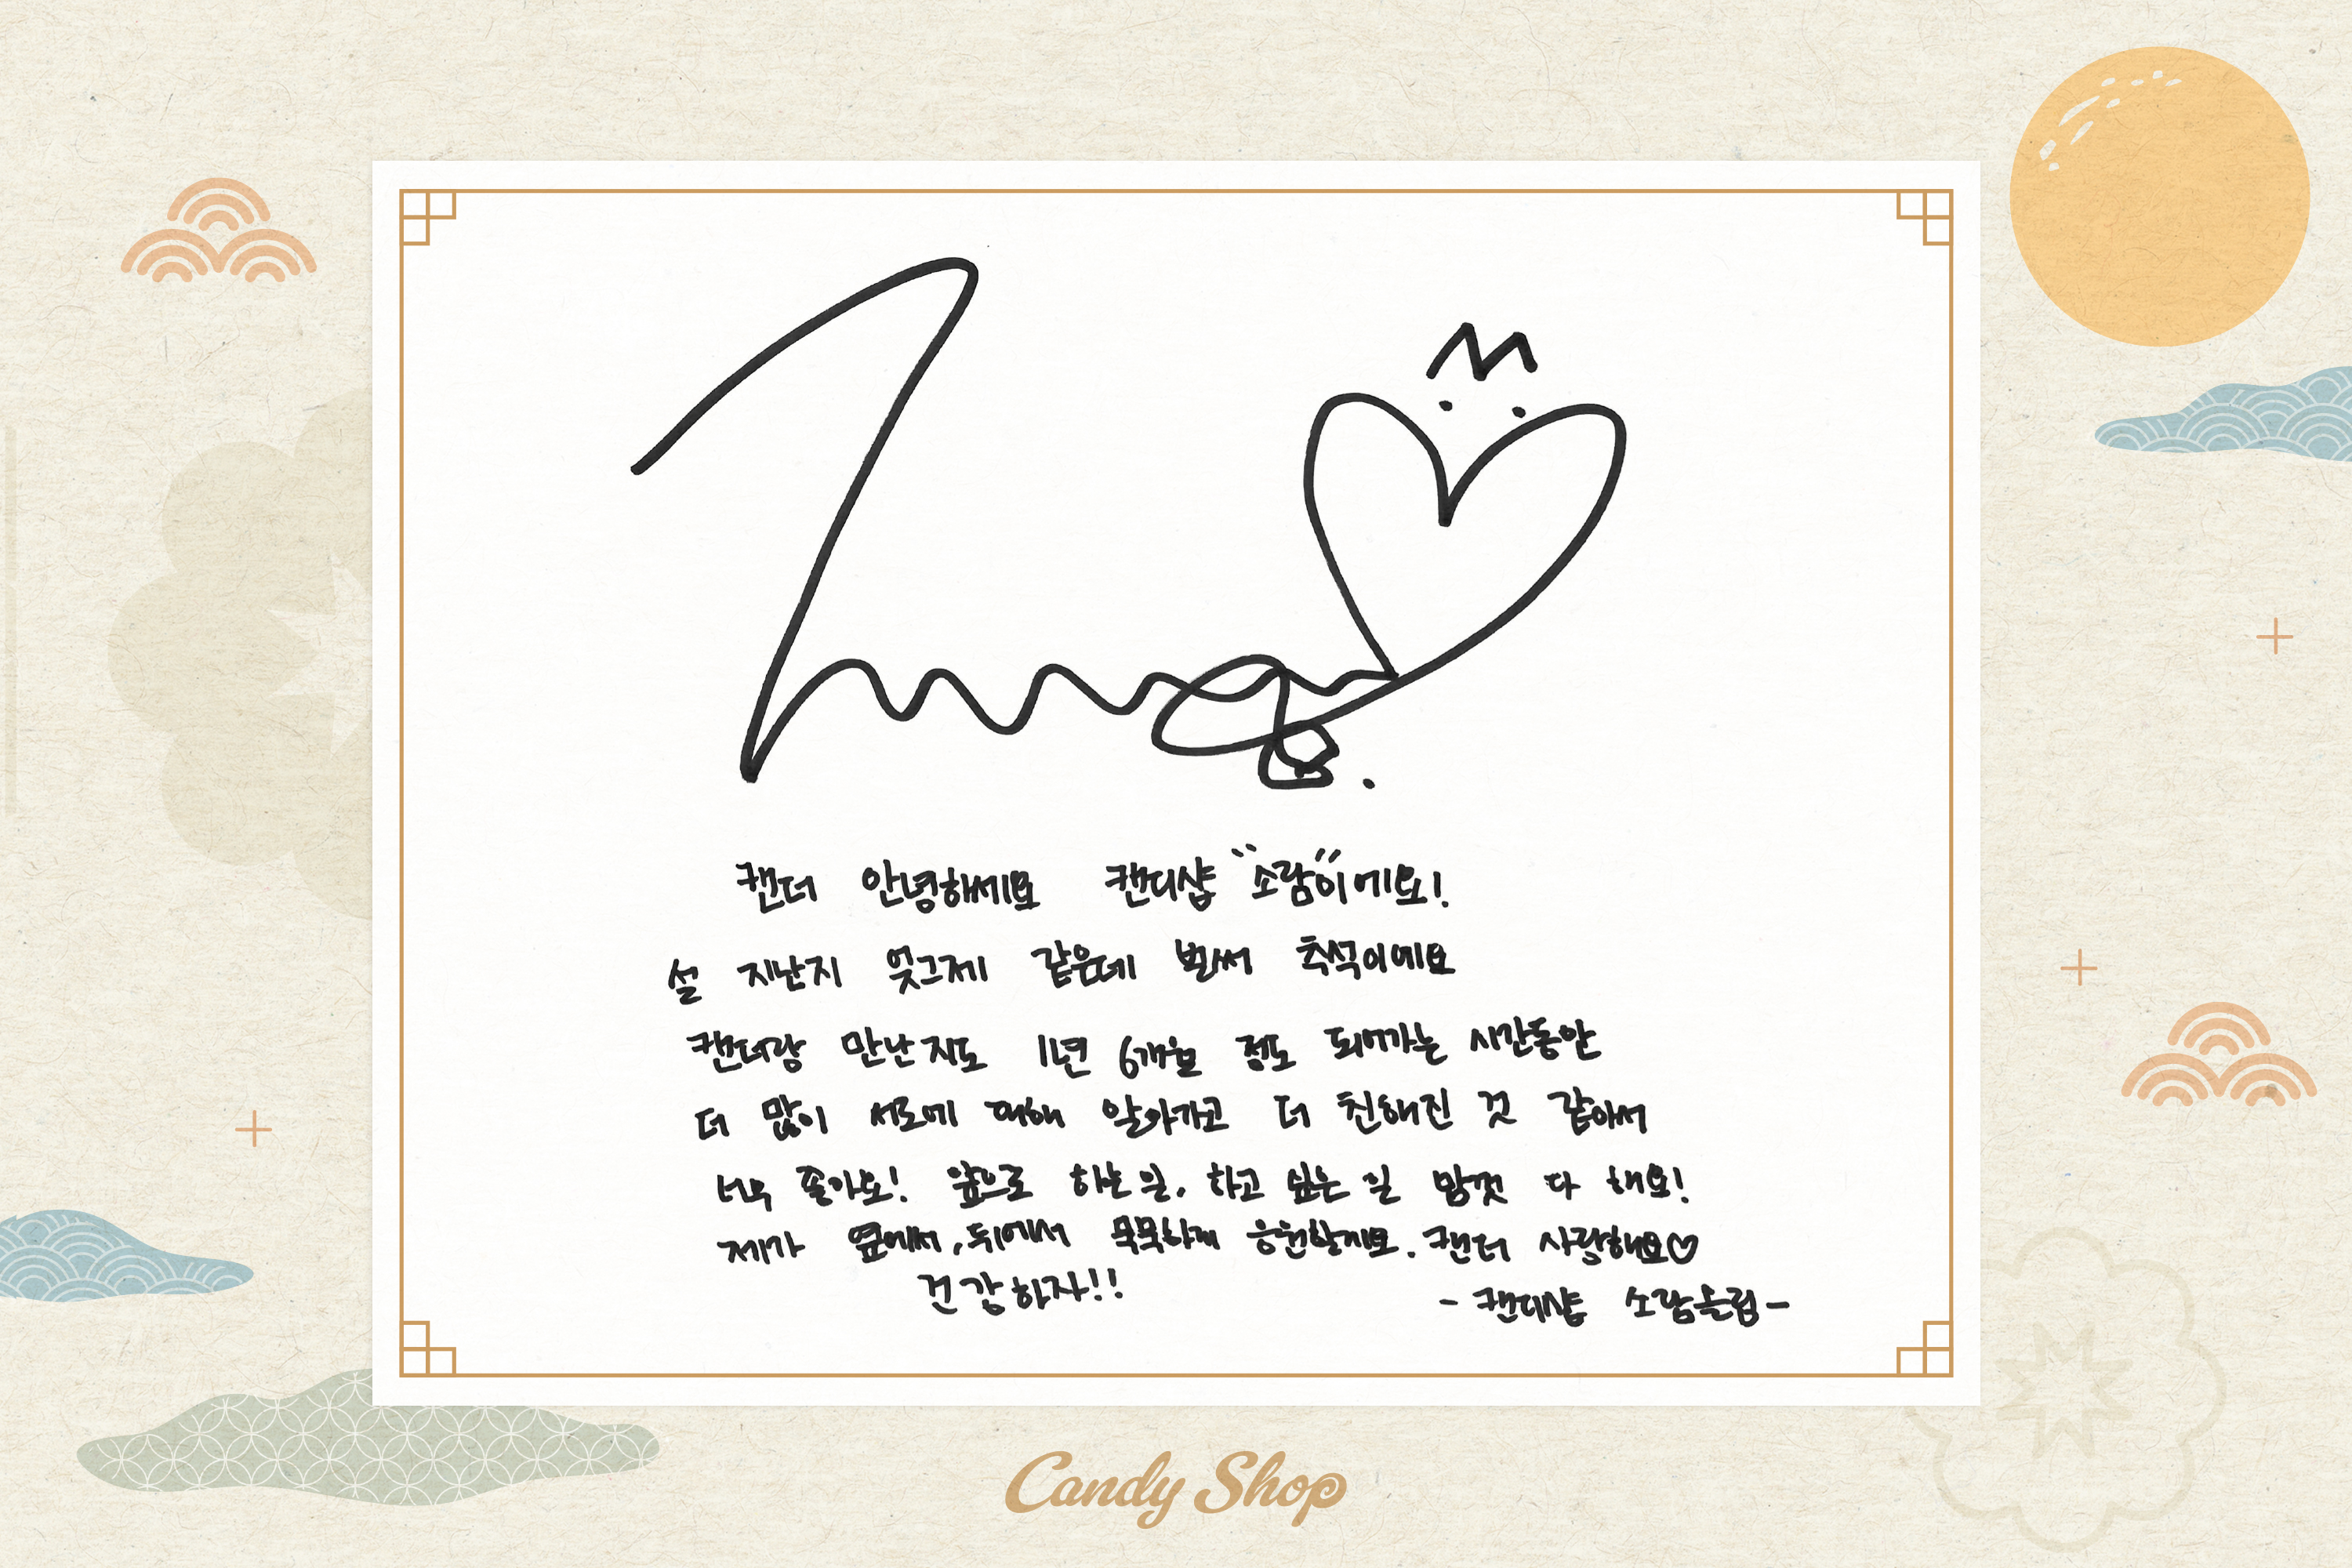 캔더 안녕하세요 캔디샵 "소람"이에요!
설 지난지 엊그제 같은데 벌써 추석이에요
캔더랑 만난지도 1년 6개월 정도 되어가는 시간동안
더 많이 서로에 대해 알아가고 더 친해진 것 같아서
너무 좋아요! 앞으로 하는 일, 하고 싶은 일 맘껏 다 해요!
제가 옆에서, 뒤에서 묵묵하게 응원할게요. 캔더 사랑해요♡
건강하자!!
- 캔디샵 소람올림 -
Candy Shop